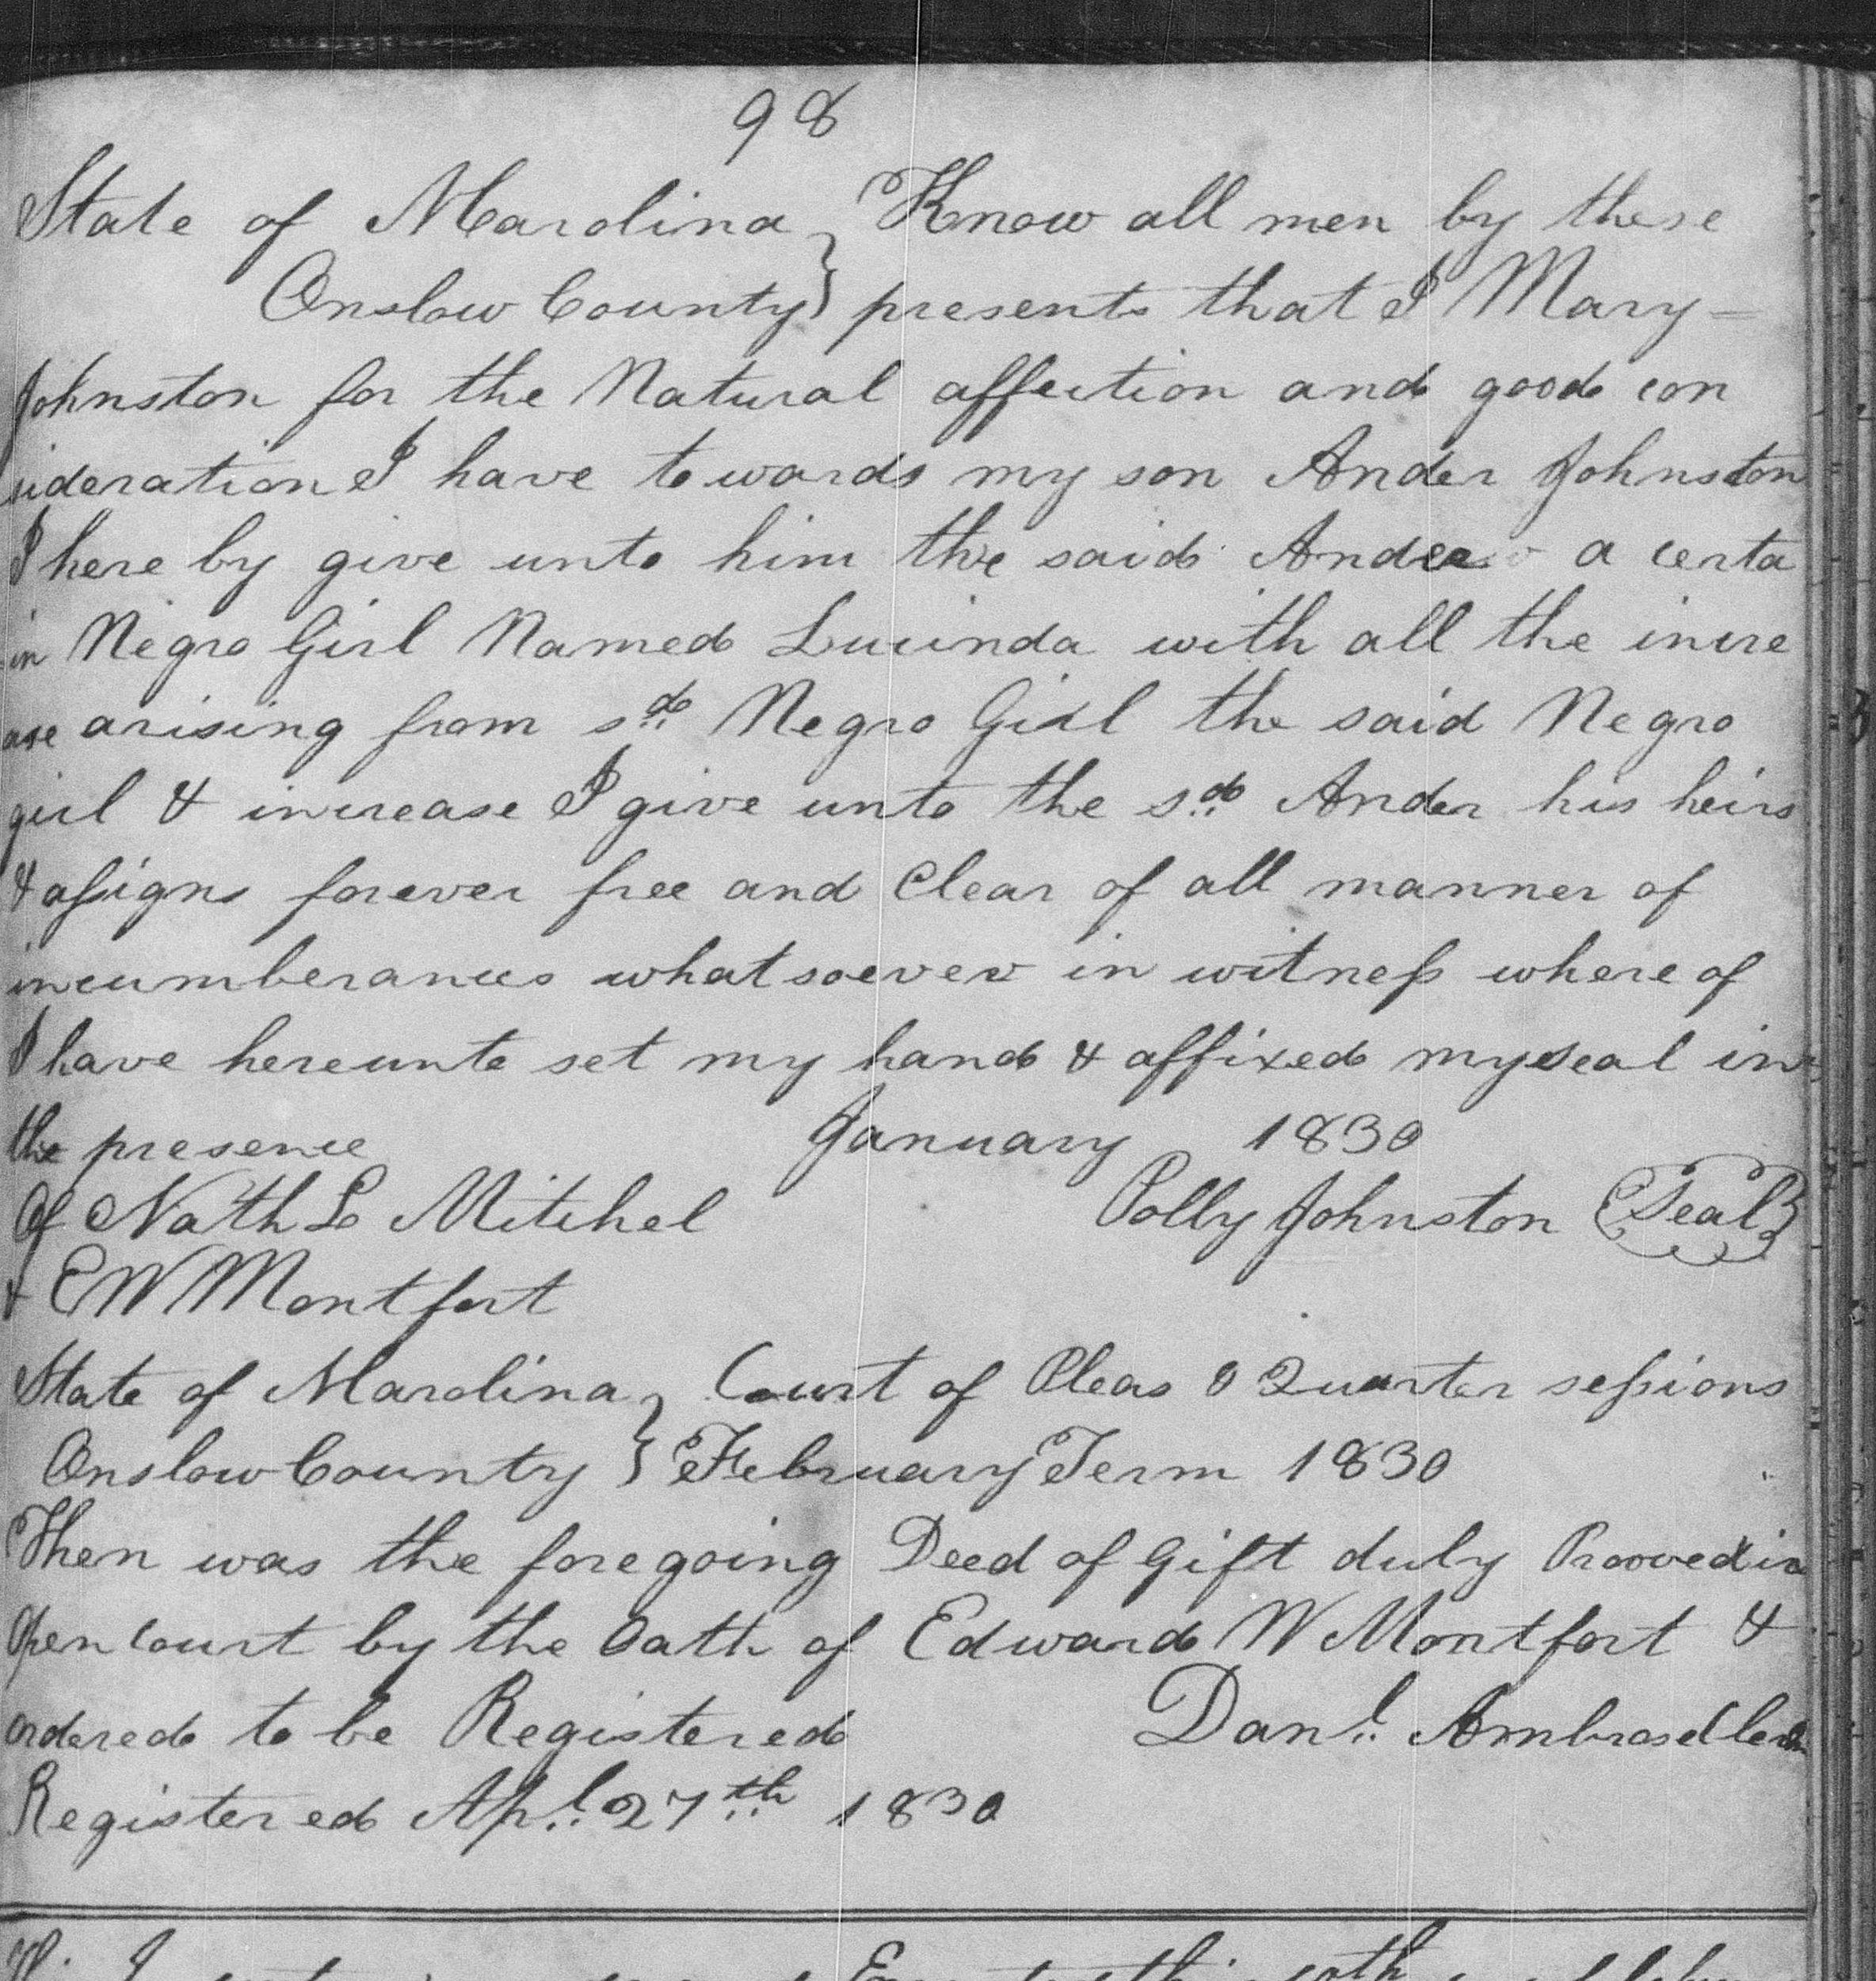 98
State of NCarolina } Know all men by these
Onslow County } presents that I Mary =
Johnston for the Natural affection and good con
sideration I have towards my son Ander Johnston
I here by give unto him the said Ander a certa
in Negro Girl Named Lucinda with all the incre
ase arising from sd Negro Girl the said Negro
girl & increase I give unto the sd Ander his heirs
& assigns forever free and Clear of all manner of
incumberances whatsoever in witness where of
I have hereunto set my hand & affixed my seal in
the presence January 1830
Of Nath L Mitchel Polly Johnston (Seal)
& E W Montfort
State of NCarolina } Court of Pleas & Quarter sessions
Onslow County } February Term 1830
Then was the foregoing Deed of Gift duly Prooved in
Open Court by the Oath of Edward W Montfort &
ordered to be Registered Danl. Ambrose Clerk
Registered Apl. 27th 1830